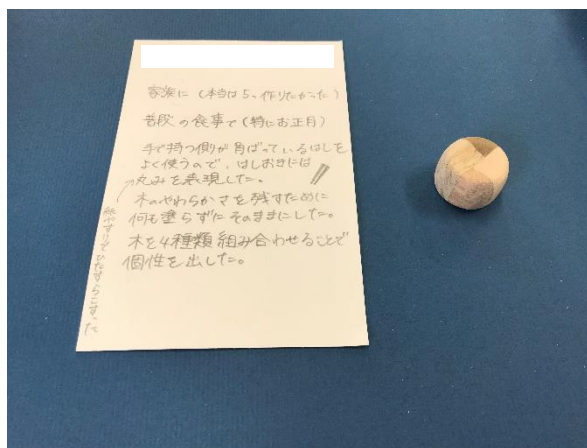 家族に（本当は5つ作りたかった）
普段の食事で（特にお正月）
手で持つ側が角ばっているはしを
よく使うので、はしおきには
丸みを表現した。
木のやわらかさを残すために
何も塗らずにそのままにした。
木を4種類組み合わせることで
個性を出した。
紙やすりでひたすらこすった